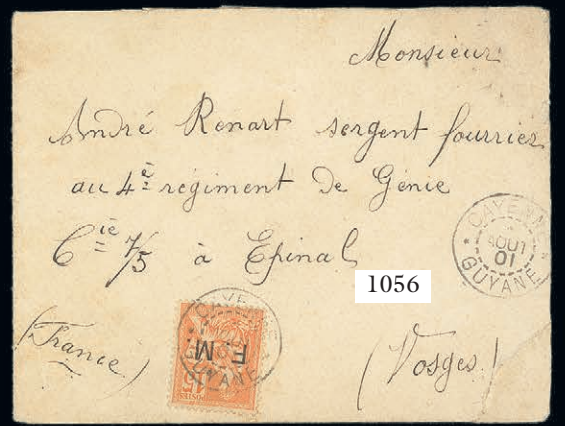 Monsieur
André Renart sergent fourrier
au 4è régiment de Génie
Cie 7/5 à Epinal
CAYENNE
AOUT
01
GUYANE
1056
(France)
(Vosges)
CAYENNE
F. M.
GUYANE
15